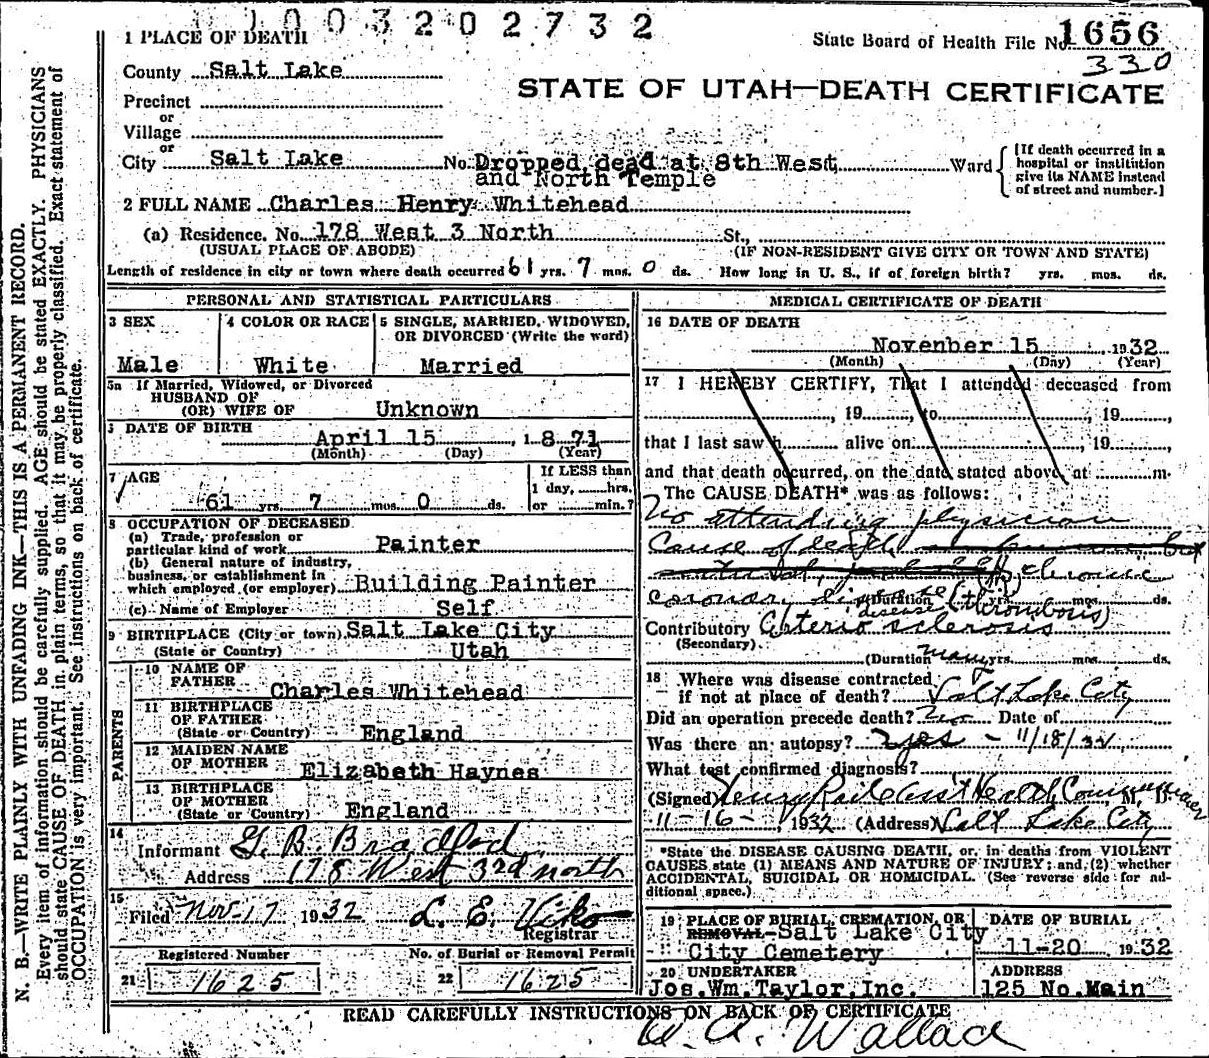 1003202732
1 PLACE OF DEATH
State Board of Health File No. 1656
330
County Salt Lake
STATE OF UTAH—DEATH CERTIFICATE
Precinct
or
Village
or
City Salt Lake No. Dropped dead at 8th West, Ward
and North Temple
[If death occurred in a
hospital or institution
give its NAME instead
of street and number.]
2 FULL NAME Charles Henry Whitehead
(a) Residence. No. 178 West 3 North St.,
(USUAL PLACE OF ABODE) (IF NON-RESIDENT GIVE CITY OR TOWN AND STATE)
Length of residence in city or town where death occurred 61 yrs. 7 mos. 0 ds. How long in U. S., if of foreign birth? yrs. mos. ds.
PERSONAL AND STATISTICAL PARTICULARS
3 SEX
Male
4 COLOR OR RACE
White
5 SINGLE, MARRIED, WIDOWED,
OR DIVORCED (Write the word)
Married
5a If Married, Widowed, or Divorced
HUSBAND OF
(OR) WIFE OF Unknown
DATE OF BIRTH
April 15, 1871
(Month) (Day) (Year)
7 AGE
61 yrs. 7 mos. 0 ds.
If LESS than
1 day, hrs.
or min.?
8 OCCUPATION OF DECEASED
(a) Trade, profession or
particular kind of work Painter
(b) General nature of industry,
business, or establishment in
which employed (or employer) Building Painter
(c) Name of Employer Self
9 BIRTHPLACE (City or town) Salt Lake City
(State or Country) Utah
PARENTS
10 NAME OF
FATHER Charles Whitehead
11 BIRTHPLACE
OF FATHER
(State or Country) England
12 MAIDEN NAME
OF MOTHER Elizabeth Haynes
13 BIRTHPLACE
OF MOTHER
(State or Country) England
14
Informant G. B. Bradford
Address 178 West 32d north
15
Filed Nov-17 1932 L. E. Viko
Registrar
Registered Number No. of Burial or Removal Permit
21 1625 22 1625
MEDICAL CERTIFICATE OF DEATH
16 DATE OF DEATH
November 15 1932
(Month) (Day) (Year)
17 I HEREBY CERTIFY, That I attended deceased from
, 19 , to , 19 ,
that I last saw h alive on , 19
and that death occurred, on the date stated above, at m.
The CAUSE DEATH* was as follows:
No attending physician
Cause of death, but
chronic
coronary disease (thrombosis)
(Duration yrs. mos. ds.
Contributory Arterio sclerosis
(Secondary)
(Duration many yrs. mos. ds.
18 Where was disease contracted
if not at place of death? Salt Lake City
Did an operation precede death? no Date of
Was there an autopsy? yes - 11/18/32
What test confirmed diagnosis?
(Signed) Henry Raile Asst Health Commissioner M. D.
11-16-, 1932 (Address) Salt Lake City
*State the DISEASE CAUSING DEATH, or, in deaths from VIOLENT
CAUSES state (1) MEANS AND NATURE OF INJURY; and (2) whether
ACCIDENTAL, SUICIDAL OR HOMICIDAL. (See reverse side for ad-
ditional space.)
19 PLACE OF BURIAL, CREMATION, OR
REMOVAL- Salt Lake City
City Cemetery
DATE OF BURIAL
11-20 1932
20 UNDERTAKER
Jos. Wm. Taylor, Inc.
ADDRESS
125 No. Main
READ CAREFULLY INSTRUCTIONS ON BACK OF CERTIFICATE
W. A. Wallace
N. B.—WRITE PLAINLY WITH UNFADING INK—THIS IS A PERMANENT RECORD.
Every item of information should be carefully supplied. AGE should be stated EXACTLY. PHYSICIANS
should state CAUSE OF DEATH in plain terms, so that it may be properly classified. Exact statement of
OCCUPATION is very important. See instructions on back of certificate.